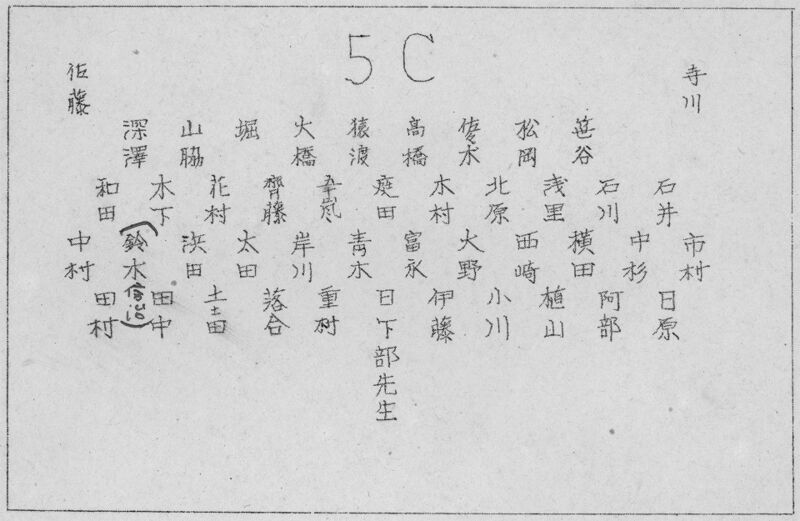 5C
佐藤 寺川
深澤 山脇 堀 大橋 猿渡 高橋 佐々木 松岡 笹谷
和田 木下 花村 齊藤 五十嵐 庭田 木村 北原 浅里 石川 石井
中村 (鈴木 浜田 太田 岸川 青木 富永 大野 西崎 横田 中杉 市村
田村 田中 土田 落合 重村 日下部先生 伊藤 小川 植山 阿部 日原